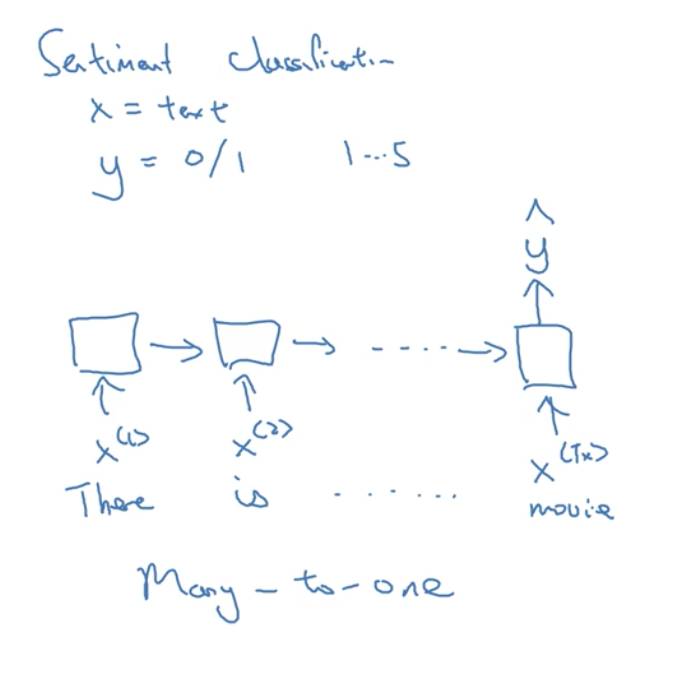 Sentiment Classification
x = text
y = 0/1 1...5
ŷ
x<1> x<2> x<Tx>
There is ....... movie
Many-to-one